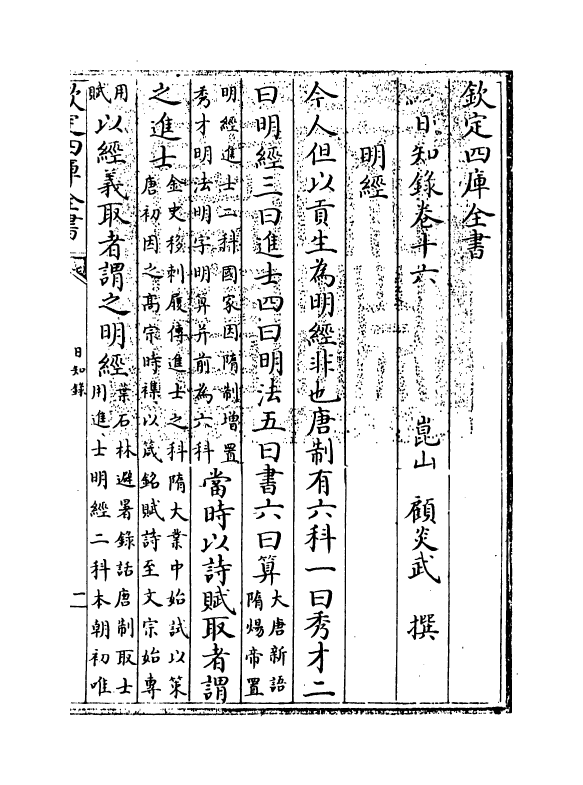 欽定四庫全書
日知錄卷十六　崑山　顧炎武　撰
明經
今人但以貢生為明經非也唐制有六科一曰秀才二
曰明經三曰進士四曰明法五曰書六曰算大唐新語
隋煬帝置
明經進士二科國家因隋制增置
秀才明法明字明算并前為六科當時以詩賦取者謂
之進士金史移剌履傳進士之科隋大業中始試以策
唐初因之高宗時襍以箴銘賦詩至文宗始專
用
賦以經義取者謂之明經葉石林避暑錄話唐制取士
用進士明經二科本朝初唯
欽定四庫全書
日知錄
二